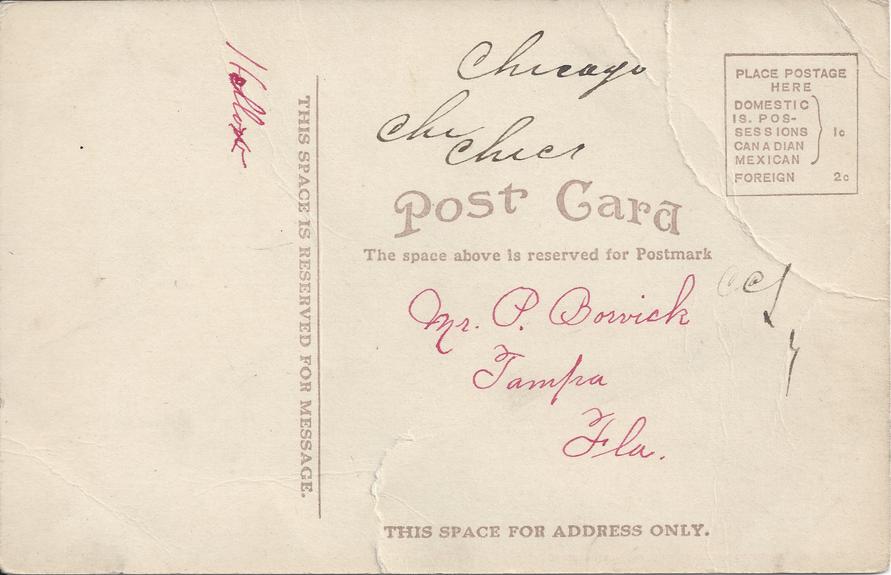 Chicago
Chi
Chica
Post Card
The space above is reserved for Postmark
PLACE POSTAGE
HERE
DOMESTIC
IS. POS-
SESSIONS
CANADIAN
MEXICAN
1c
FOREIGN 2c
THIS SPACE IS RESERVED FOR MESSAGE.
Mr. P. Borwick
Tampa
Fla.
THIS SPACE FOR ADDRESS ONLY.